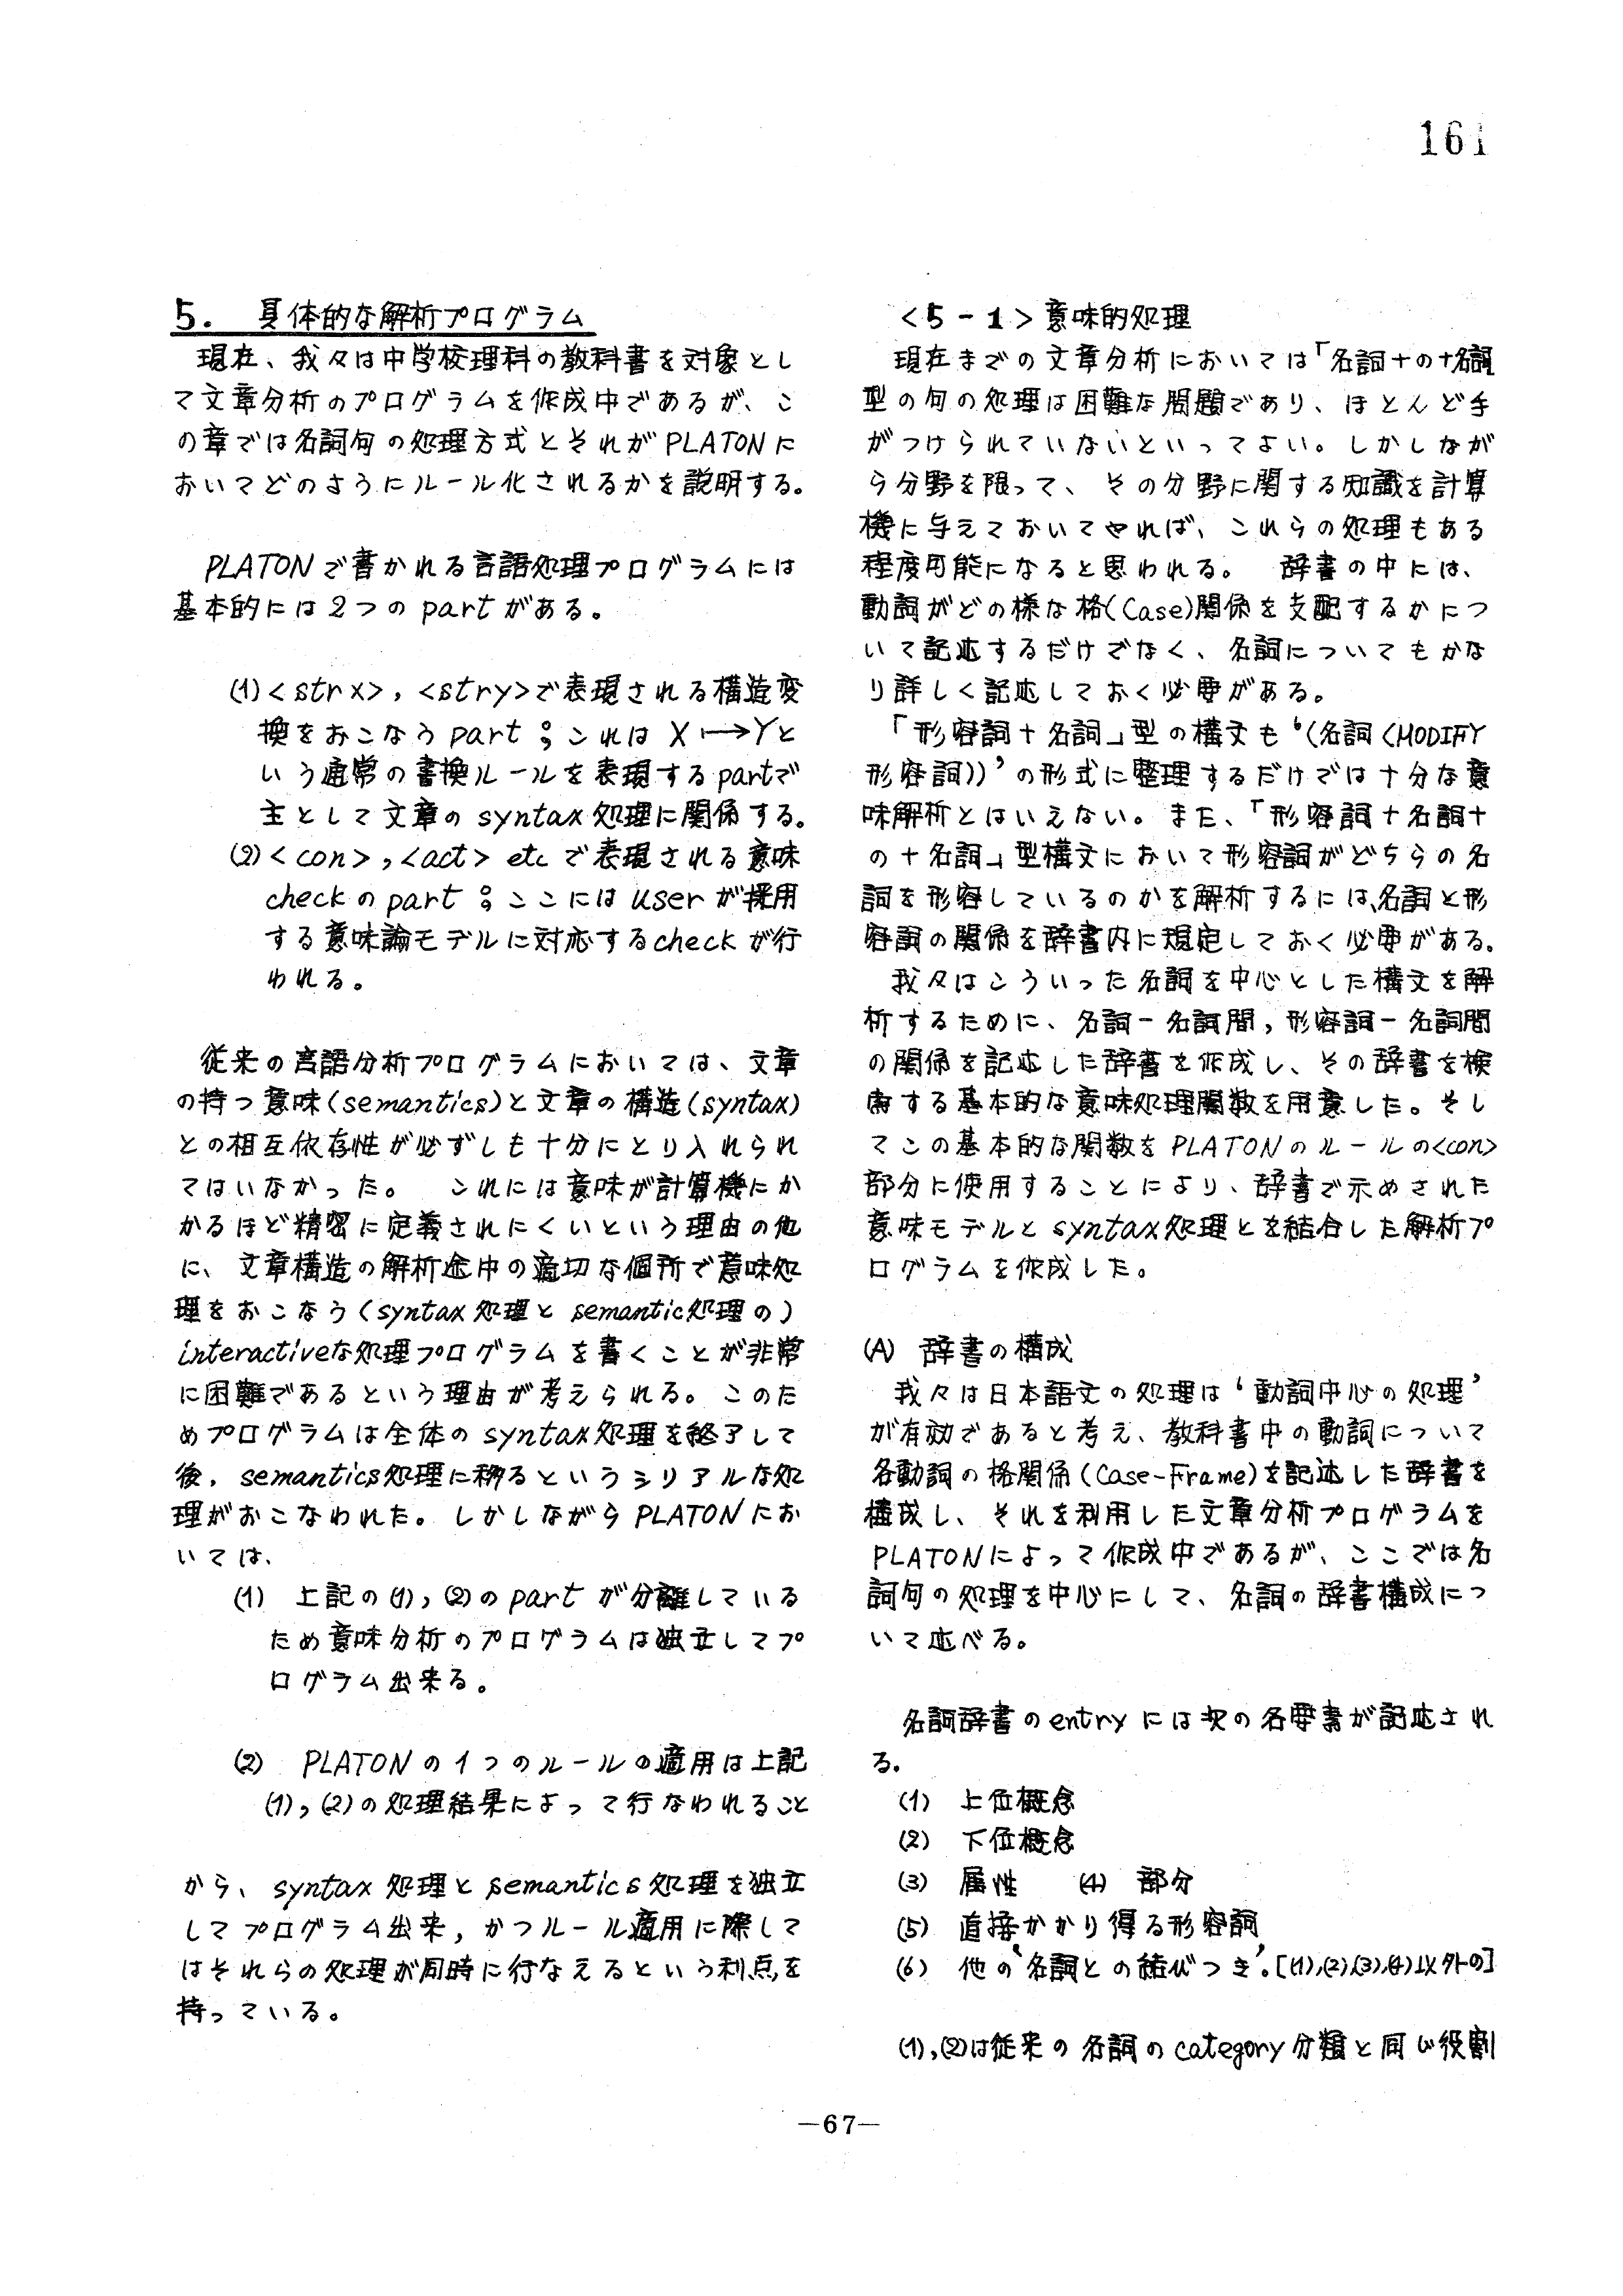 161
5. 具体的な解析プログラム
現在、我々は中学校理科の教科書を対象とし
て文章分析のプログラムを作成中であるが、こ
の章では名詞句の処理方式とそれがPLATONに
おいてどのようにルール化されるかを説明する。
PLATONで書かれる言語処理プログラムには
基本的には2つのpartがある。
(1)<strx>,<stry>で表現される構造変
換をおこなうpart;これはX↦Yと
いう通常の書換ルールを表現するpartで
主として文章のsyntax処理に関係する。
(2)<con>,<act> etcで表現される意味
checkのpart;ここにはuserが採用
する意味論モデルに対応するcheckが行
われる。
従来の言語分析プログラムにおいては、文章
の持つ意味(semantics)と文章の構造(syntax)
との相互依存性が必ずしも十分にとり入れられ
てはいなかった。 これには意味が計算機にか
かるほど精密に定義されにくいという理由の他
に、文章構造の解析途中の適切な個所で意味処
理をおこなう(syntax処理とsemantic処理の)
interactiveな処理プログラムを書くことが非常
に困難であるという理由が考えられる。このた
めプログラムは全体のsyntax処理を終了して
後,semantics処理に移るというシリアルな処
理がおこなわれた。しかしながらPLATONにお
いては、
(1) 上記の(1),(2)のpartが分離している
ため意味分析のプログラムは独立してプ
ログラム出来る。
(2) PLATONの1つのルールの適用は上記
(1),(2)の処理結果によって行なわれること
から、syntax処理とsemantics処理を独立
してプログラム出来,かつルール適用に際して
はそれらの処理が同時に行なえるという利点を
持っている。
<5-1>意味的処理
現在までの文章分析においては「名詞+の+名詞」
型の句の処理は困難な問題であり、ほとんど手
がつけられていないといってよい。しかしなが
ら分野を限って、その分野に関する知識を計算
機に与えておいてやれば、これらの処理もある
程度可能になると思われる。 辞書の中には、
動詞がどの様な格(Case)関係を支配するかにつ
いて記述するだけでなく、名詞についてもかな
り詳しく記述しておく必要がある。
「形容詞+名詞」型の構文も‘(名詞(MODIFY
形容詞))’の形式に整理するだけでは十分な意
味解析とはいえない。また、「形容詞+名詞+
の+名詞」型構文において形容詞がどちらの名
詞を形容しているのかを解析するには、名詞と形
容詞の関係を辞書内に規定しておく必要がある。
我々はこういった名詞を中心とした構文を解
析するために、名詞-名詞間,形容詞-名詞間
の関係を記述した辞書を作成し、その辞書を検
索する基本的な意味処理関数を用意した。そし
てこの基本的な関数をPLATONのルールの<con>
部分に使用することにより、辞書で示めされた
意味モデルとsyntax処理とを結合した解析プ
ログラムを作成した。
(A) 辞書の構成
我々は日本語文の処理は‘動詞中心の処理’
が有効であると考え、教科書中の動詞について
各動詞の格関係(Case-Frame)を記述した辞書を
構成し、それを利用した文章分析プログラムを
PLATONによって作成中であるが、ここでは名
詞句の処理を中心にして、名詞の辞書構成につ
いて述べる。
名詞辞書のentryには次の各要書が記述され
る。
(1) 上位概念
(2) 下位概念
(3) 属性 (4) 部分
(5) 直接かかり得る形容詞
(6) 他の‘名詞との結びつき’。[(1),(2),(3),(4)以外の]
(1),(2)は従来の名詞のcategory分類と同じ役割
—67—